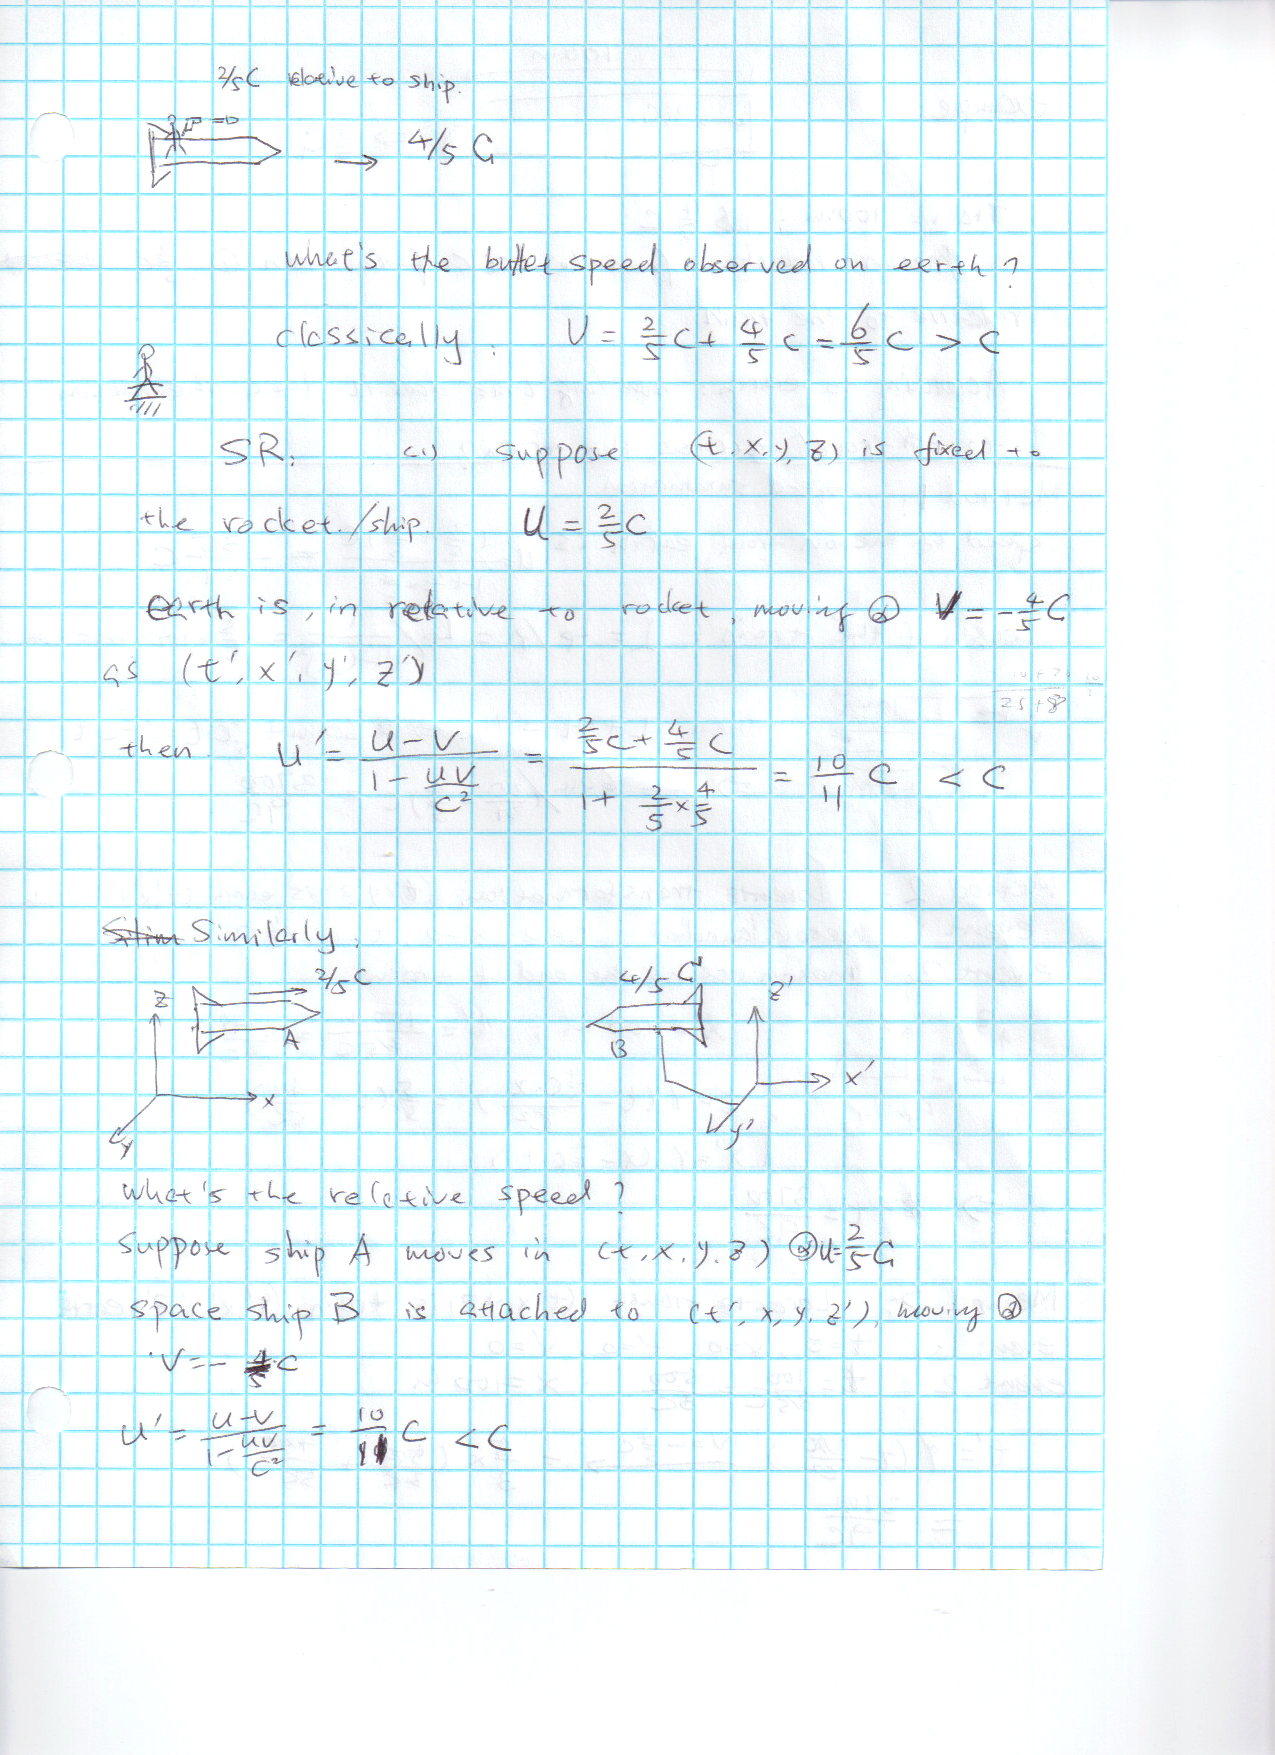 2/5C relative to ship.
→ 4/5 C
what's the bullet speed observed on eerth ?
classically : V = 2/5 C + 4/5 C = 6/5 C > C
SR: (1) suppose (t, x, y, z) is fixed to
the rocket./ship. U = 2/5 C
earth is, in relative to rocket, moving @ V = - 4/5 C
as (t', x', y', z')
25+8
then u' = (u-v)/(1 - uv/c²) = (2/5 C + 4/5 C)/(1 + 2/5 × 4/5) = 10/11 C < C
Similarly.
2/5 C 4/5 C
z A B z'
x x'
y y'
what's the relative speed ?
suppose ship A moves in (t, x, y, z) @ u=2/5 C
space ship B is attached to (t', x, y, z'), moving @
V = - 4/5 C
u' = (u-v)/(1 - uv/c²) = 10/11 C < C